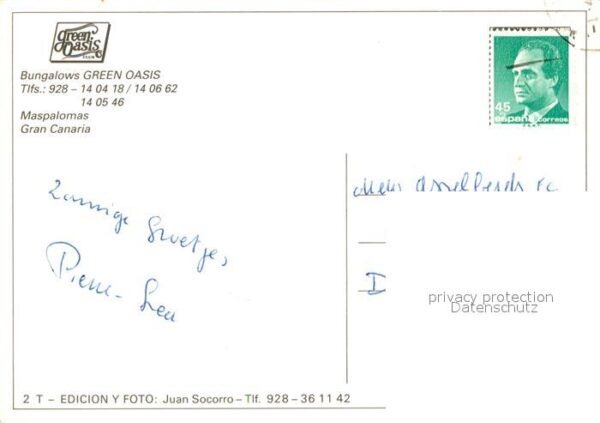 Green
Oasis
Bungalows GREEN OASIS
Tlfs.: 928 – 14 04 18 / 14 06 62
14 05 46
Maspalomas
Gran Canaria
45
españa correos
Zonnige Groetjes,
Pierre - Lea
D
privacy protection
Datenschutz
2 T – EDICION Y FOTO: Juan Socorro – Tlf. 928 – 36 11 42